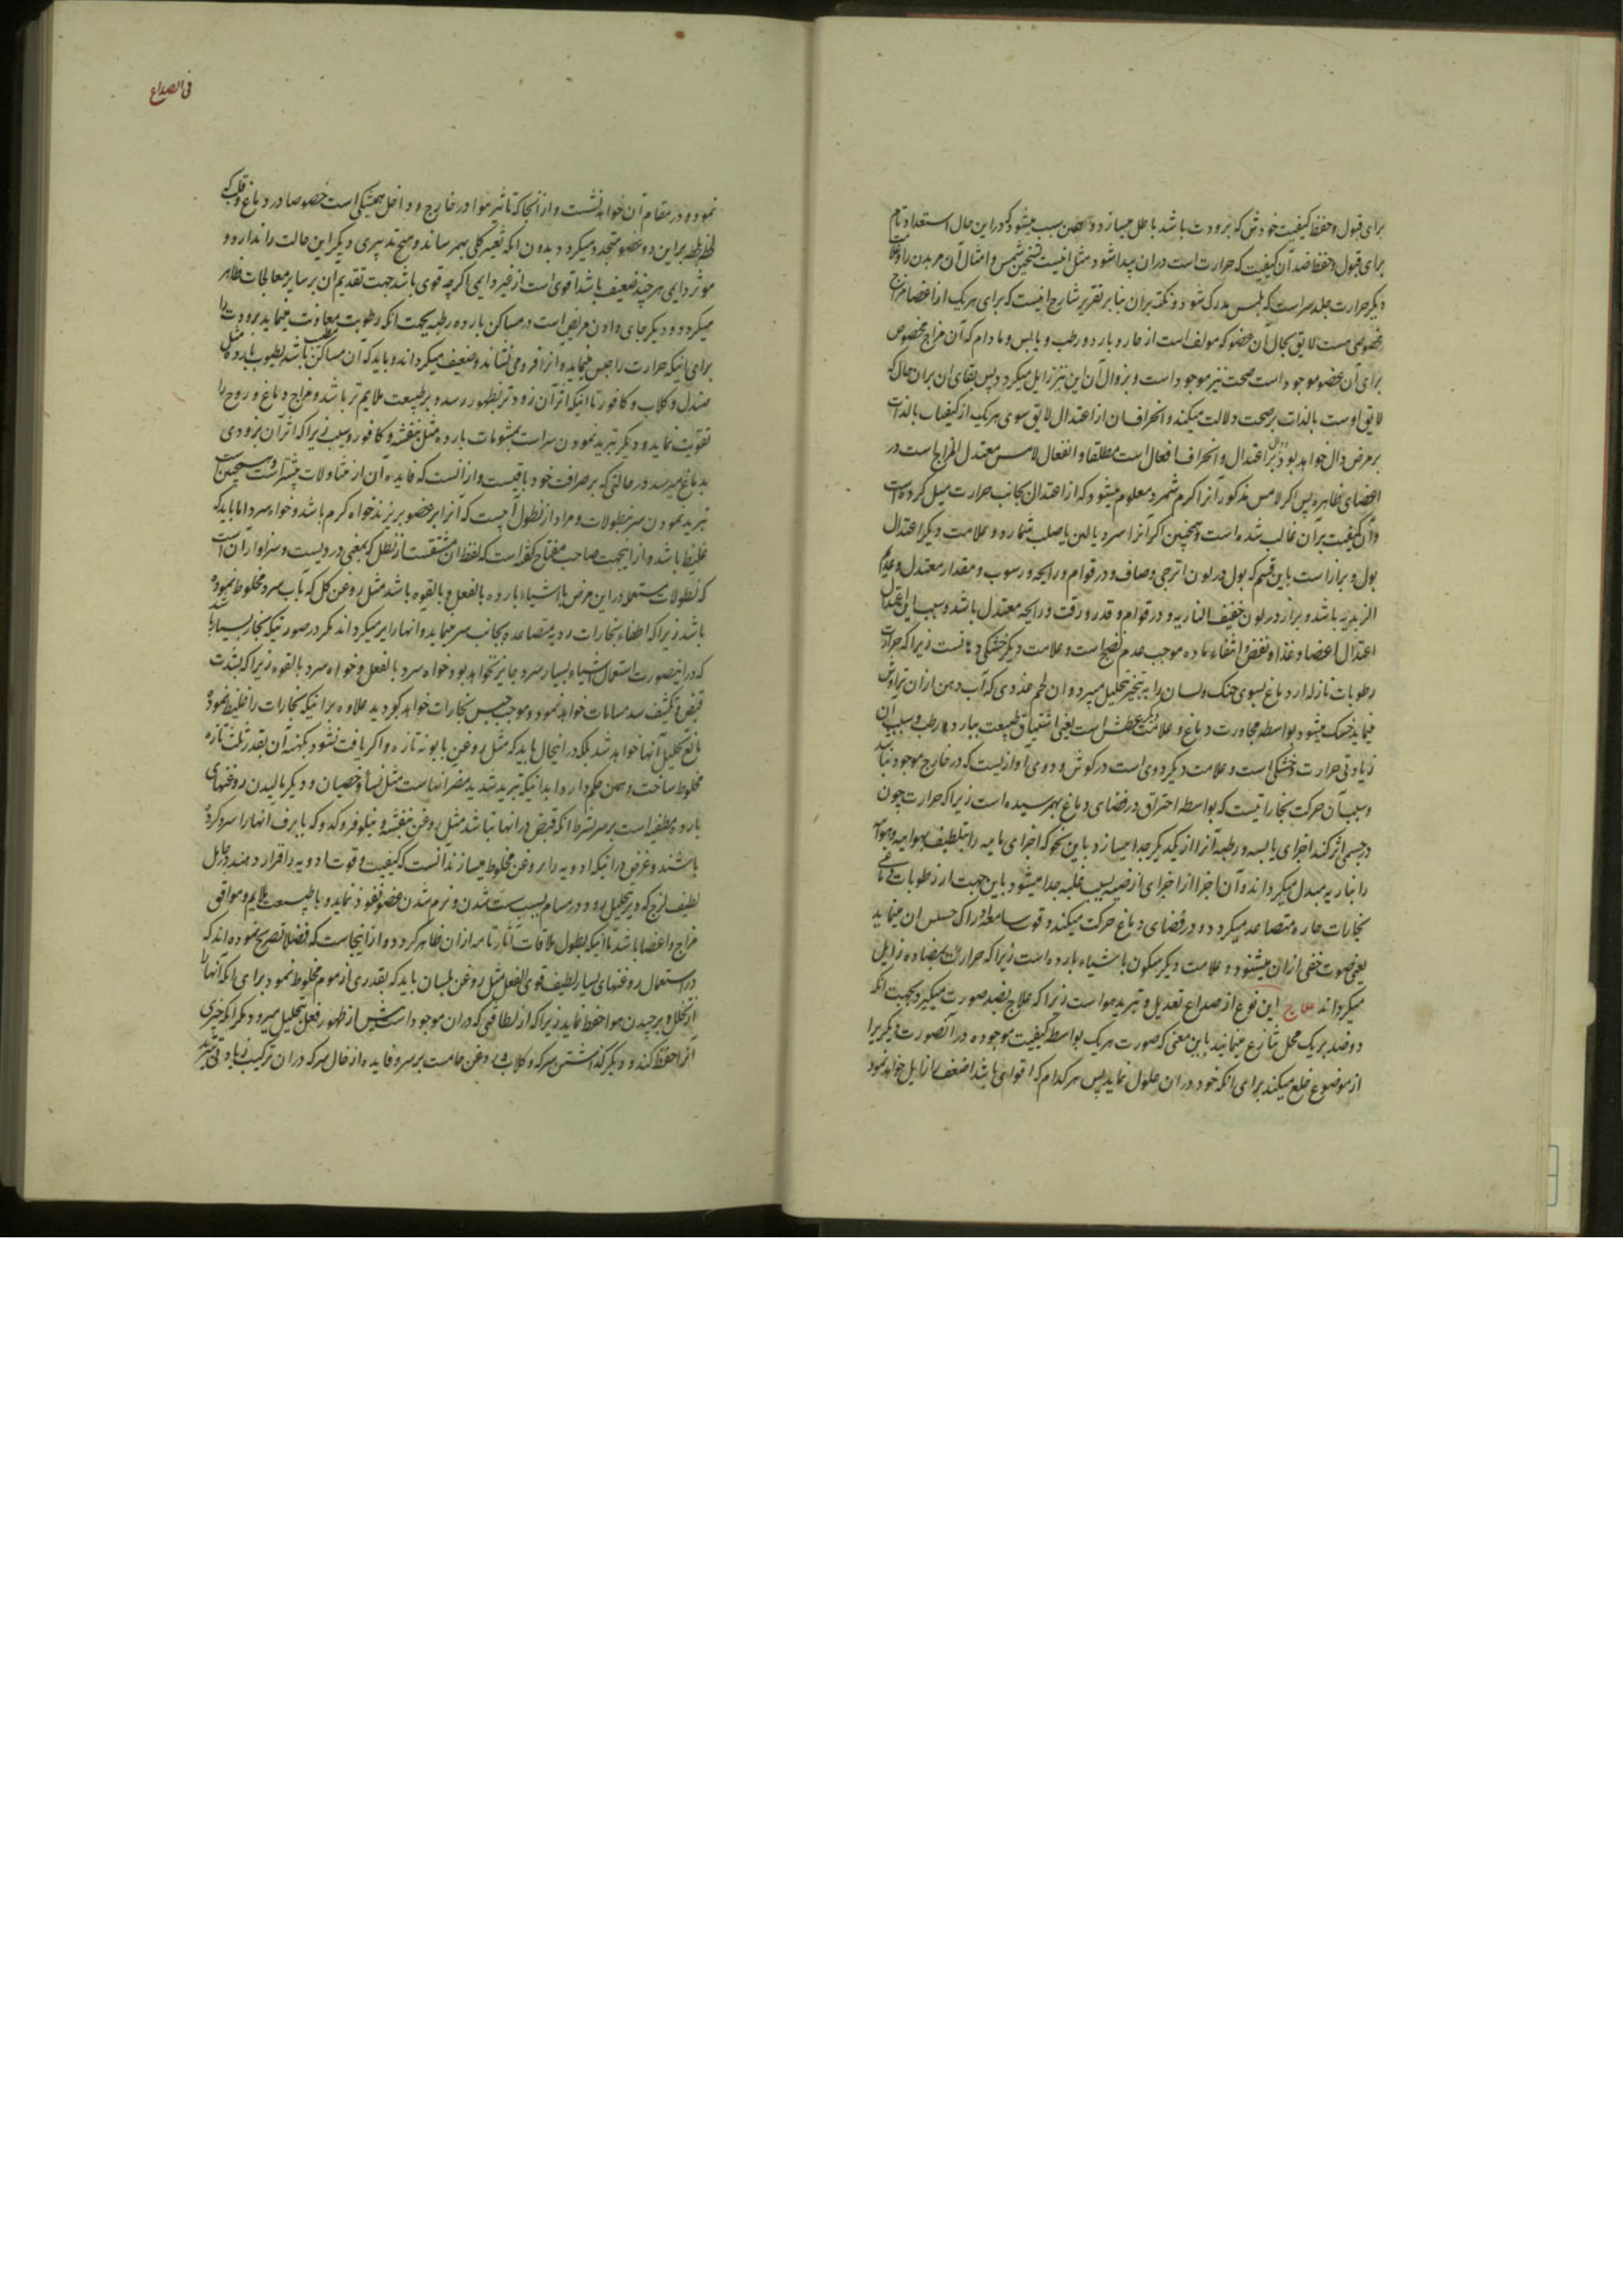 برای قبول و حفظ کیفیت خودش که برودت باشد باطل میسازد و همین سبب میشود که در این حال استعداد تام
برای قبول و حفظ ضد آن کیفیت که حرارت است در آن پیدا شود مثل تسخین شمس و امثال آن مر بدن را و علامت
دیگر حرارت جلد سر است که بلمس مدرک شود و نکته بر آن بنا بر تقریر شارح اینست که برای هر یک از اعضا مزاج
مخصوصی هست لایق بحال آن عضو که مولف است از حار و بارد و رطب و یابس و مادام که آن مزاج مخصوص
برای آن عضو موجود است صحت نیز موجود است و بزوال آن این نیز زایل میکردد پس بقای آن بر آن حال که
لایق اوست بالذات بر صحت دلالت میکند و انحراف آن از اعتدال لایق سوی هر یک از کیفیات بالذات
بر مرض دال خواهد بود و اعتدال و انحراف افعال است مطلقا و انفعال لامس معتدل المزاج است در
اعضای ظاهره پس اکر لامس مذکور آنرا کرم شمرد معلوم میشود که از اعتدال بجانب حرارت میل کرده است
و آن کیفیت بر آن غالب شده است و همچنین اکر آنرا سرد یا لین یا صلب شمارد و علامت دیکر اعتدال
بول و براز است باین قسم که بول در لون اترجی و صاف و در قوام و رایحه و رسوب و مقدار معتدل و عدیم
الزبدیه باشد و براز در لون خفیف الناریه و در قوام و قدر و رقت و رایحه معتدل باشد و سبب این اعتدال
اعتدال اعضا و غذا و نفض و انتفاء ماده موجب عدم نضج است و علامت دیکر خشکی دهانست زیرا که حرارت
رطوبات نازله از دماغ بسوی حنک و لسان را به تبخیر تحلیل میبرد و آن لحم غددی که آب دهن از آن تراوش
مینماید خشک میشود بواسطه مجاورت دماغ و علامت دیکر عطش است یعنی اشتیاق طبیعت ببارد و رطب و سبب آن
زیادتی حرارت و خشکی است و علامت دیکر دوی است در کوش و دوی آوازیست که در خارج موجود نباشد
و سبب آن حرکت بخاراتیست که بواسطه احتراق در فضای دماغ بهم رسیده است زیرا که حرارت چون
در جسمی اثر کند اجزای یابسه و رطبه آنرا از یکدیکر جدا میسازد باین نحو که اجزای ماییه را بتلطیف بهواییه و هواییه
را بناریه مبدل میکرداند و آن اجزا از اجزای ارضیه بسبب غلبه جدا میشود باین جهت از رطوبات دماغی
بخارات حاره متصاعد میکردد و در فضای دماغ حرکت میکند و قوت سامعه ادراک حسیس آن مینماید
یعنی صوت خفی از آن میشنود و علامت دیکر سکون باشیاء بارده است زیرا که حرارت بمضاده زایل
میکرداند علاج این نوع از صداع تعدیل و تبرید هواست زیرا که علاج بضد صورت میکیرد بجهت آنکه
دو ضد بر یک محل تنازع مینمایند باین معنی که صورت هر یک بواسطه کیفیت موجوده در آن صورت دیکریرا
از موضوع خلع میکند برای آنکه خود در آن حلول نماید پس هر کدام که اقوی باشد اضعف را زایل خواهد نمود
فی الصداع
نموده و در مقام آن خواهد نشست و از آنجا که تاثیر هوا در خارج و داخل همیشکی است خصوصا در دماغ و قلب که
لحظه بلحظه بر این دو عضو متجدد میکردد بدون آنکه تغییر کلی بهم رساند و هیچ تدبیری دیکر این حالت را ندارد و
موثر دایمی هر چند ضعیف باشد اقوی است از غیر دایمی اکرچه قوی باشد جهت تقدیم آن بر سایر معالجات ظاهر
میکردد و دیکر جای دادن مریض است در مساکن بارده رطبه بجهت آنکه رطوبت معاونت مینماید برودت را
برای آنکه حرارت را حبس مینماید و آنرا فرو می نشاند و ضعیف میکرداند و باید که آن مساکن مطیب باشد بطیوب بارده مثل
صندل و کلاب و کافور تا آنکه اثر آن زودتر بظهور رسد و بر طبیعت ملایم تر باشد و مزاج دماغ و روح را
تقویت نماید و دیکر تبرید نمودن سر است بمشمومات بارده مثل بنفشه و کافور و سبب زیرا که اثر آن بزودی
بدماغ میرسد در حالتی که بر صرافت خود باقیست و از آنست که فایده آن از متناولات بیشتر است و همچنین است
تبرید نمودن سر بنطولات و مراد از نطول آبیست که آنرا بر عضو بریزند خواه کرم باشد و خواه سرد اما باید که
غلیظ باشد و از اینجهت صاحب مفتاح کفته است که لفظ آن مشتقست از نطل که بمعنی دردیست و سزاوار آن است
که نطولات مستعمله در این مرض باشیاء بارده بالفعل و بالقوه باشد مثل روغن کل که بآب سرد مخلوط نموده
باشد زیرا که اطفاء بخارات ردیه متصاعده بجانب سر مینماید و آنها را بر میکرداند مکر در صورتیکه بخار بسیار باشد
که در اینصورت استعمال اشیاء بسیار سرد جایز نخواهد بود خواه سرد بالفعل و خواه سرد بالقوه زیرا که بشدت
قبض و تکثیف سد مسامات خواهد نمود و موجب حبس بخارات خواهد کردید علاوه بر آنکه بخارات را غلیظ نموده
مانع تحلیل آنها خواهد شد بلکه در اینحال باید که مثل روغن بابونه تازه و اکر یافت نشود کهنه آن بقدر ثلث تازه
مخلوط ساخت و همین حکم دارد ابدانیکه تبرید شدید مضر آنهاست مثل نساء و خصیان و دیکر مالیدن روغنهای
بارده مطفیه است بر سر بشرط آنکه قبض در آنها نباشد مثل روغن بنفشه و نیلوفر و کدو که با برف آنها را سرد کرده
باشند و غرض در آنکه ادویه را بر روغن مخلوط میسازند آنست که کیفیت و قوت ادویه را قرار دهند در حامل
لطیف لزج که دیر تحلیل رود و در مسام بسبب سست شدن و نرم شدن عضو نفوذ نماید و با طبیعت ملایم و موافق
مزاج و اعضا باشد تا آنکه بطول ملاقات آثار تامه از آن ظاهر کردد و از اینجاست که فضلا تصریح نموده اند که
در استعمال روغنهای بسیار لطیف قوی الفعل مثل روغن بلسان باید که بقدری از موم مخلوط نمود برای آنکه آنها را
از تخلل و برچیدن هوا حفظ نماید زیرا که از لطافتی که در آن موجود است پیش از ظهور فعل بتحلیل میرود مکر آنکه چیزی
آنرا حفظ کند و دیکر کذاشتن سرکه و کلاب و روغن خامست بر سر و فایده ادخال سرکه در آن ترکیب زیادتی تبرید